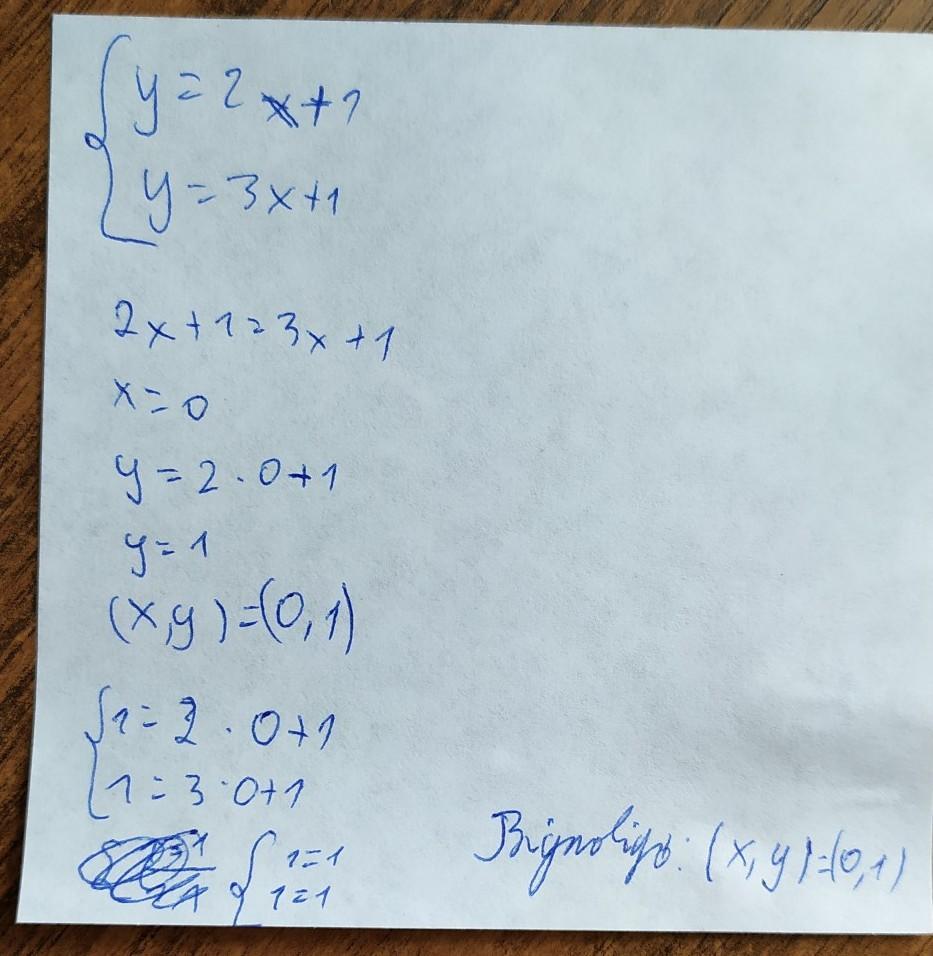 { y = 2x + 1
y = 3x + 1
2x + 1 = 3x + 1
x = 0
y = 2 · 0 + 1
y = 1
(x, y) = (0, 1)
{ 1 = 2 · 0 + 1
1 = 3 · 0 + 1
{ 1 = 1
1 = 1
Відповідь: (x, y) = (0, 1)